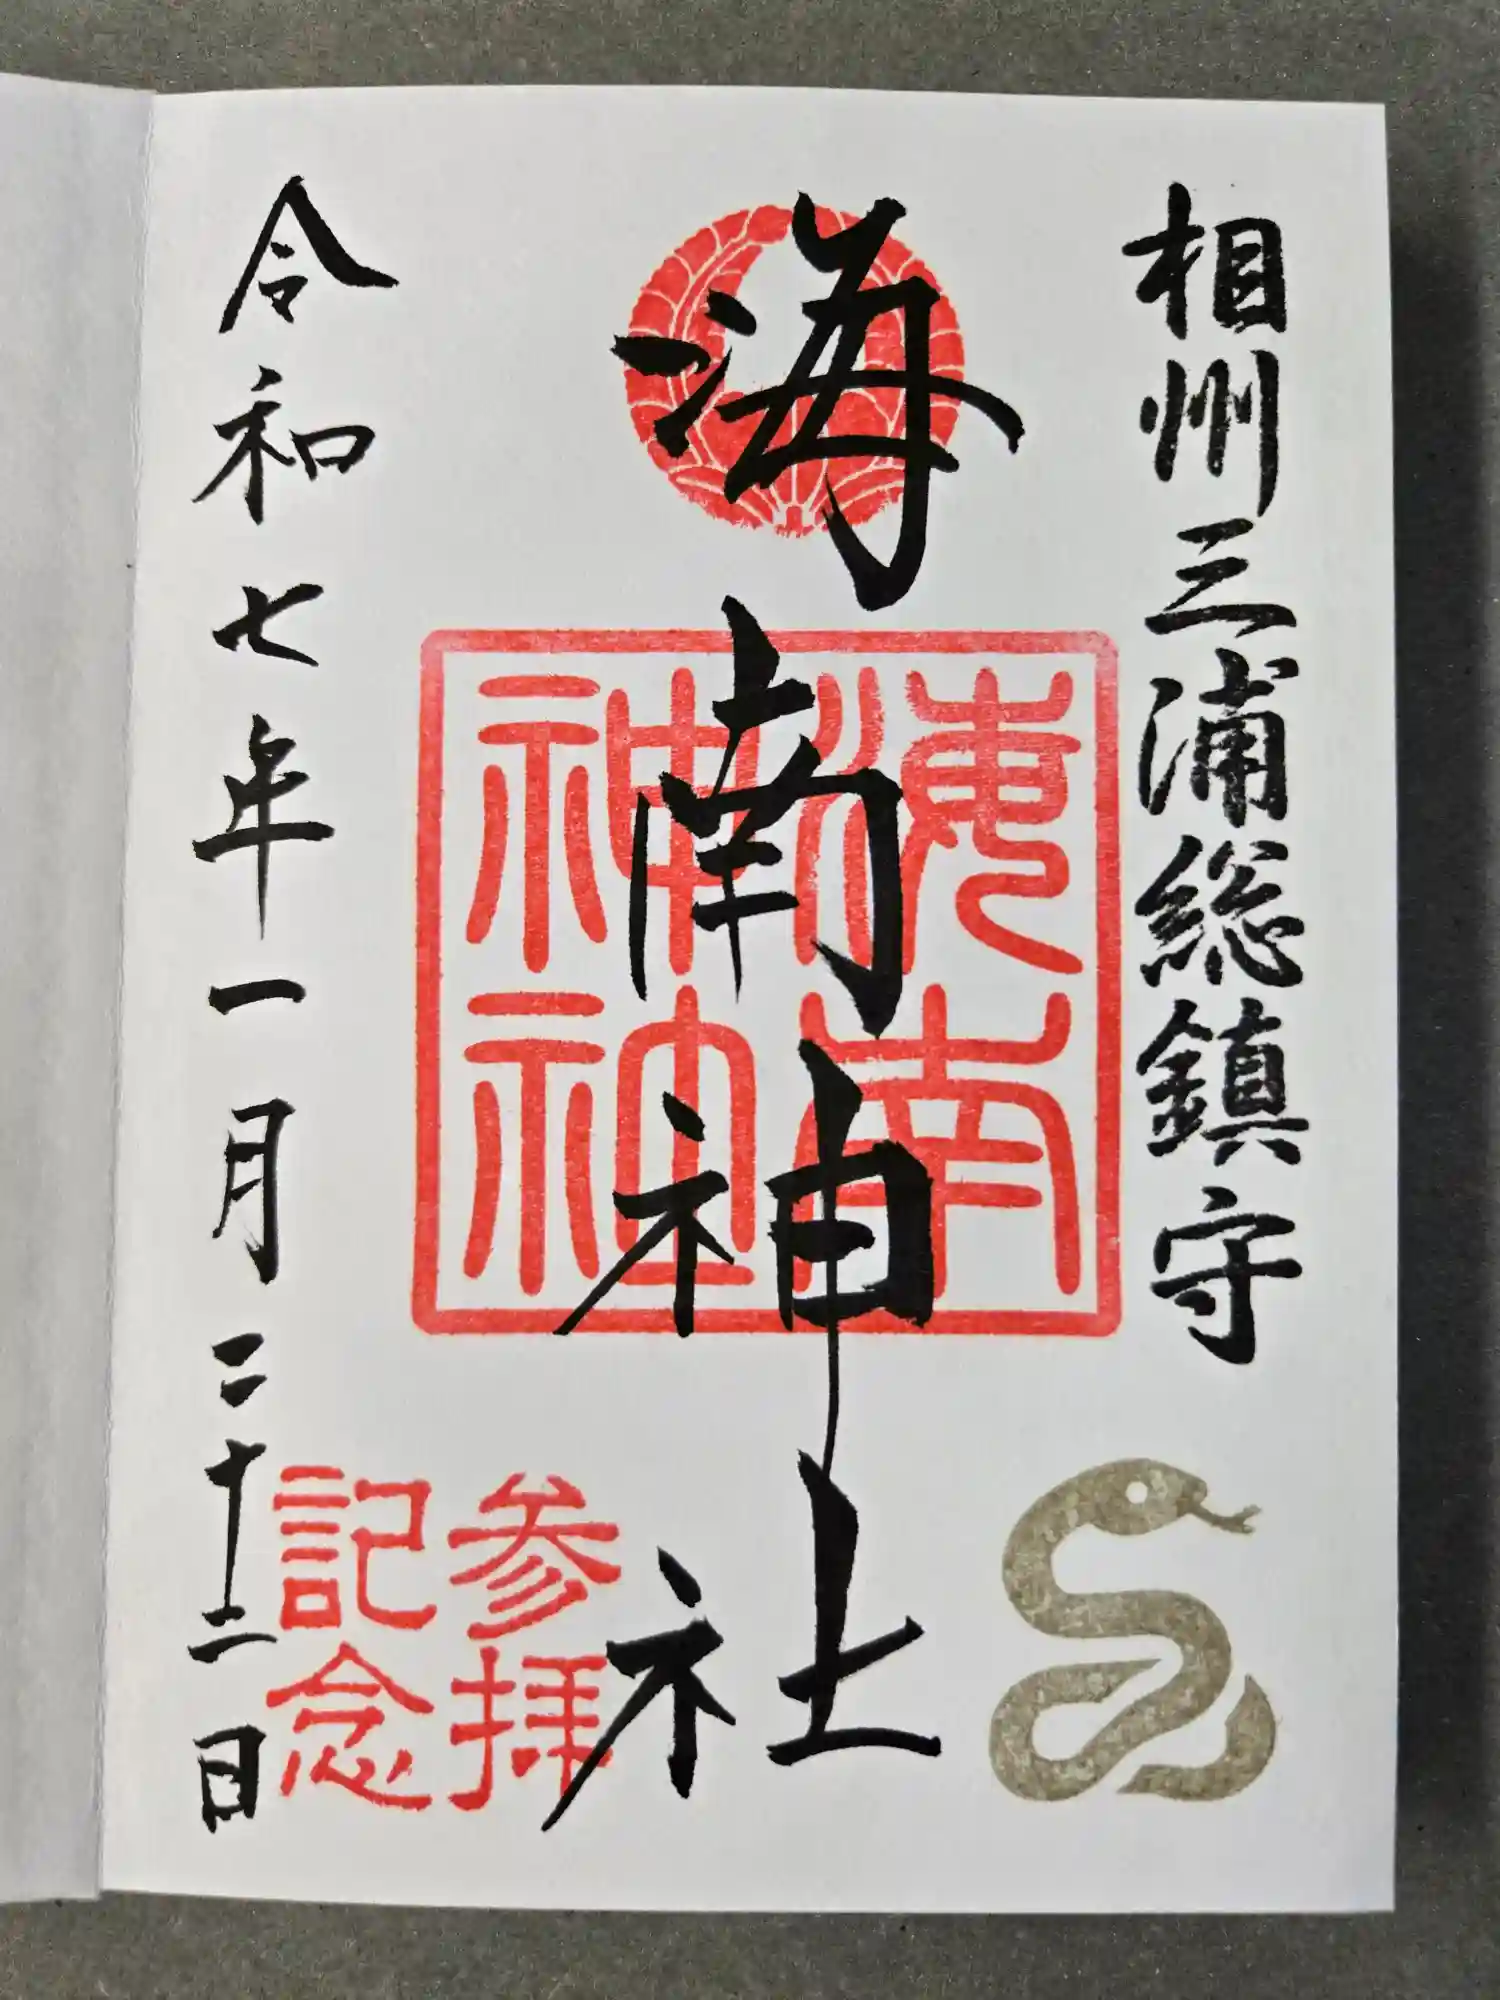 相州三浦総鎮守
海南神社
海南神社
参拝記念
令和七年一月二十二日